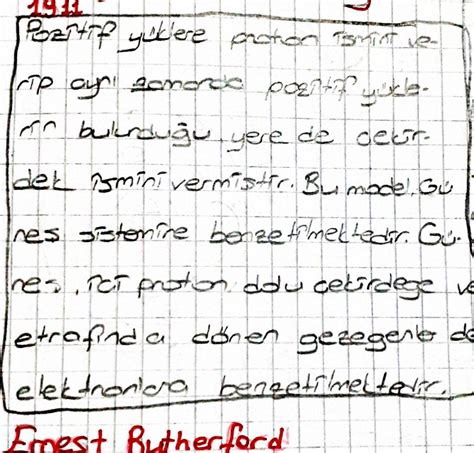 1911
Pozitif yüklere proton ismini ve-
rip aynı zamanda pozitif yükle-
rin bulunduğu yere de çekir-
dek ismini vermiştir. Bu model, Gü
neş sistemine benzetilmektedir. Gü-
neş, içi proton dolu çekirdeğe ve
etrafında dönen gezegenler de
elektronlara benzetilmektedir.
Ernest Rutherford